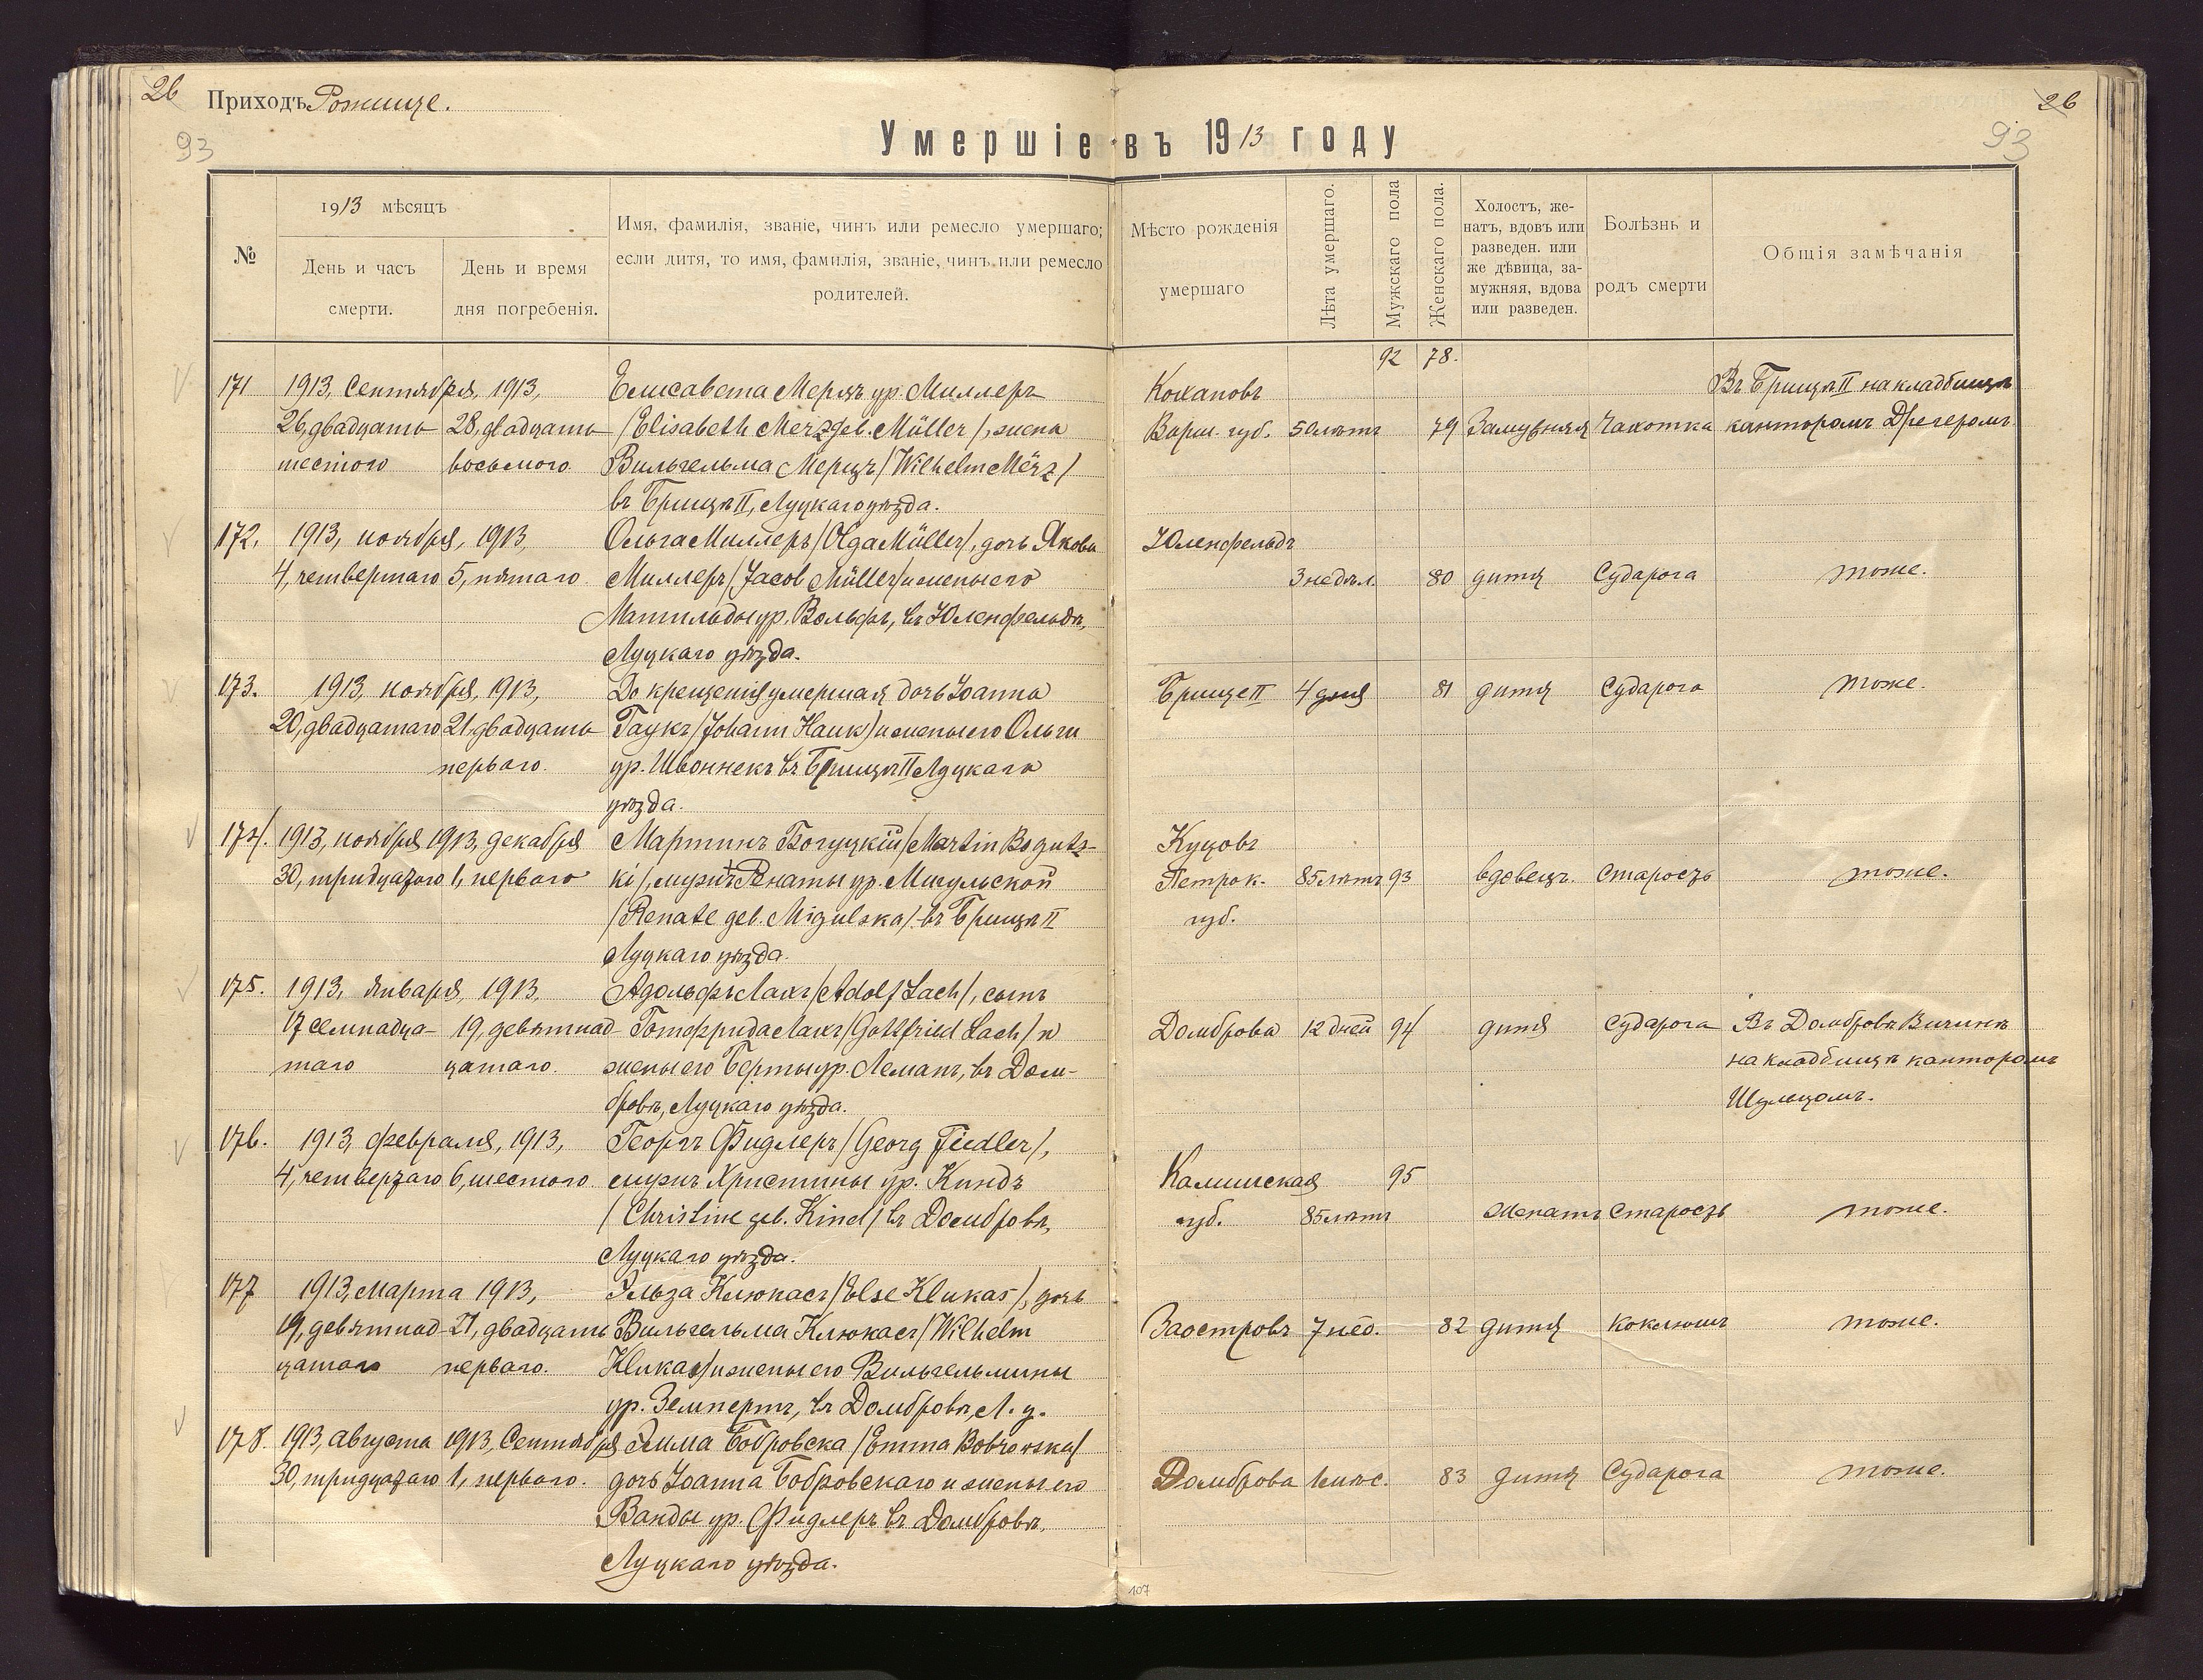 26
Приходъ Рожище.
26
93
93
Умершіе въ 1913 году
№
1913 мѣсяцъ
День и часъ смерти.
День и время дня погребенія.
Имя, фамилія, званіе, чинъ или ремесло умершаго;
если дитя, то имя, фамилія, званіе, чинъ или ремесло
родителей.
Мѣсто рожденія
умершаго
Лѣта умершаго.
Мужскаго пола
Женскаго пола.
Холостъ, же-
натъ, вдовъ или
разведен. или
же дѣвица, за-
мужняя, вдова
или разведен.
Болѣзнь и
родъ смерти
Общія замѣчанія
92 78.
171 1913, Сентября, 1913, Елисавета Мерцъ ур. Миллеръ Кохановъ Въ Брищѣ II на кладбищѣ
26, двадцать 28, двадцать /Elisabeth Merz geb. Müller/, жена Варш. губ. 50 лѣтъ 79 Замужняя Чахотка канторомъ Дрегеромъ
шестого восьмого Вильгельма Мерцъ /Wilhelm Merz/
въ Брищѣ II, Луцкаго уѣзда.
172. 1913, ноября, 1913, Ольга Миллеръ /Olga Müller/, дочь Якова Юленфельдъ
4, четвертаго 5, пятаго Миллеръ /Jacob Müller/ и жены его 3 недѣл. 80 дитя Судорога тоже.
Матильды ур. Вольфъ, въ Юленфельдѣ,
Луцкаго уѣзда.
173. 1913, ноября, 1913, До крещенія умершая дочь Іоанна Брище II 4 дня 81 дитя Судорога тоже.
20, двадцатаго 21, двадцать Гаукъ /Johann Hauk/ и жены его Ольги
перваго. ур. Швоннекъ въ Брищѣ II Луцкаго
уѣзда.
174. 1913, ноября 1913, декабря Мартинъ Богуцкій /Martin Bogutz- Куцовъ
30, тридцатаго 1, перваго ki/, мужъ Ренаты ур. Мигульской Петрок. 85 лѣтъ 93 вдовецъ. Старость тоже.
/Renate geb. Migulska/ въ Брищѣ II губ.
Луцкаго уѣзда.
175. 1913, января, 1913, Адольфъ Лахъ /Adolf Lach/, сынъ
17 семнадца- 19, девятнад- Готфрида Лахъ /Gottfried Lach/ и Домброва 12 дней 94 дитя Судорога Въ Домбровѣ
таго цатаго. жены его Берты ур. Леманъ, въ Дом- на кладбищѣ канторомъ
бровѣ, Луцкаго уѣзда.
176. 1913, февраля, 1913, Георгъ Фидлеръ /Georg Fiedler/,
4, четвертаго 6, шестого. мужъ Христины ур. Киндъ Калишская 95
/Christine geb. Kind/ въ Домбровѣ, губ. 85 лѣтъ Женатъ Старость тоже.
Луцкаго уѣзда.
177 1913, Марта 1913, Эльза Клюкасъ /Else Klukas/, дочь
19, девятнад- 21, двадцать Вильгельма Клюкасъ /Wilhelm Заостровъ 7 нед. 82 дитя коклюшъ тоже.
цатаго перваго. Klukas/ и жены его Вильгельмины
ур. Земпертъ, въ Домбровѣ, Л. у.
178. 1913, августа 1913, Сентября Эмма Бобровска /Emma Bobrowska/
30, тридцатаго 1, перваго. дочь Іоанна Бобровскаго и жены его Домброва 1 мѣс. 83 дитя Судорога тоже.
Ванды ур. Фидлеръ въ Домбровѣ,
Луцкаго уѣзда.
107